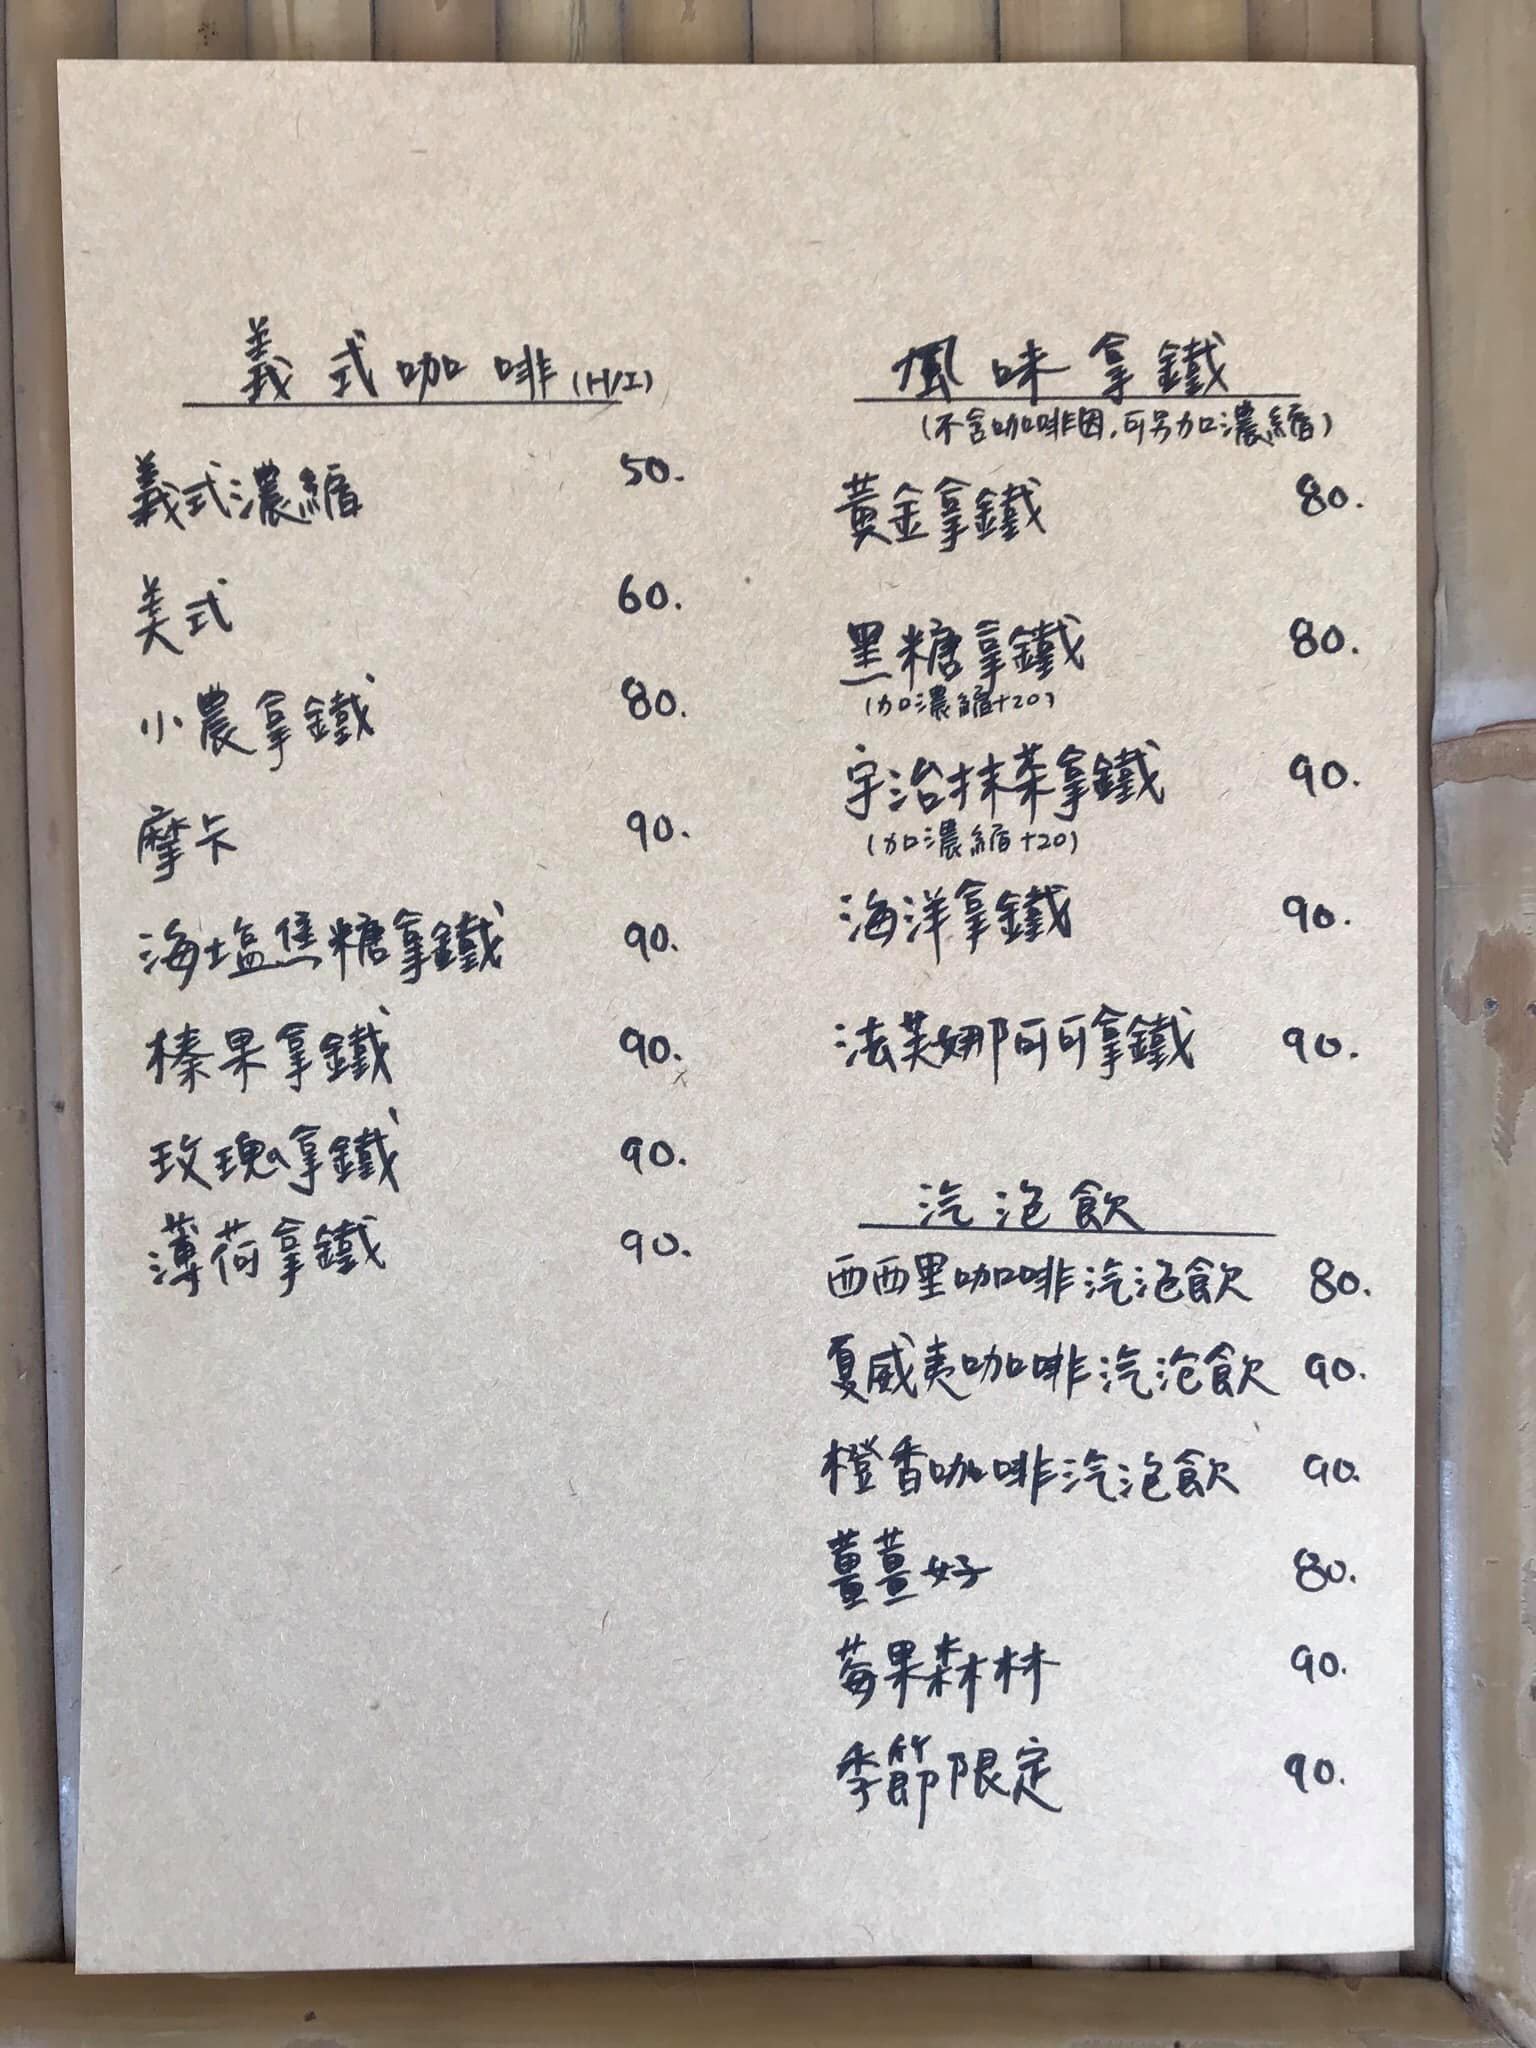 義式咖啡(H/I)
義式濃縮 50.
美式 60.
小農拿鐵 80.
摩卡 90.
海塩焦糖拿鐵 90.
榛果拿鐵 90.
玫瑰拿鐵 90.
薄荷拿鐵 90.
風味拿鐵
(不含咖啡因,可另加濃縮)
黃金拿鐵 80.
黑糖拿鐵 80.
(加濃縮+20)
宇治抹茶拿鐵 90.
(加濃縮+20)
海洋拿鐵 90.
法芙娜可可拿鐵 90.
汽泡飲
西西里咖啡汽泡飲 80.
夏威夷咖啡汽泡飲 90.
橙香咖啡汽泡飲 90.
薑薑好 80.
莓果森林 90.
季節限定 90.